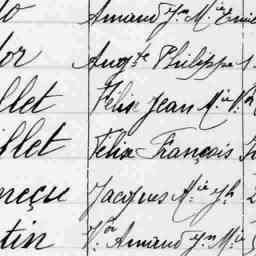 o Amand Jn Mie Emi
or Augte Philippe
llet Félix Jean Mie
illet Félix François
neçu Jacques Mie Jh
tin Vor Armand Jn Mie